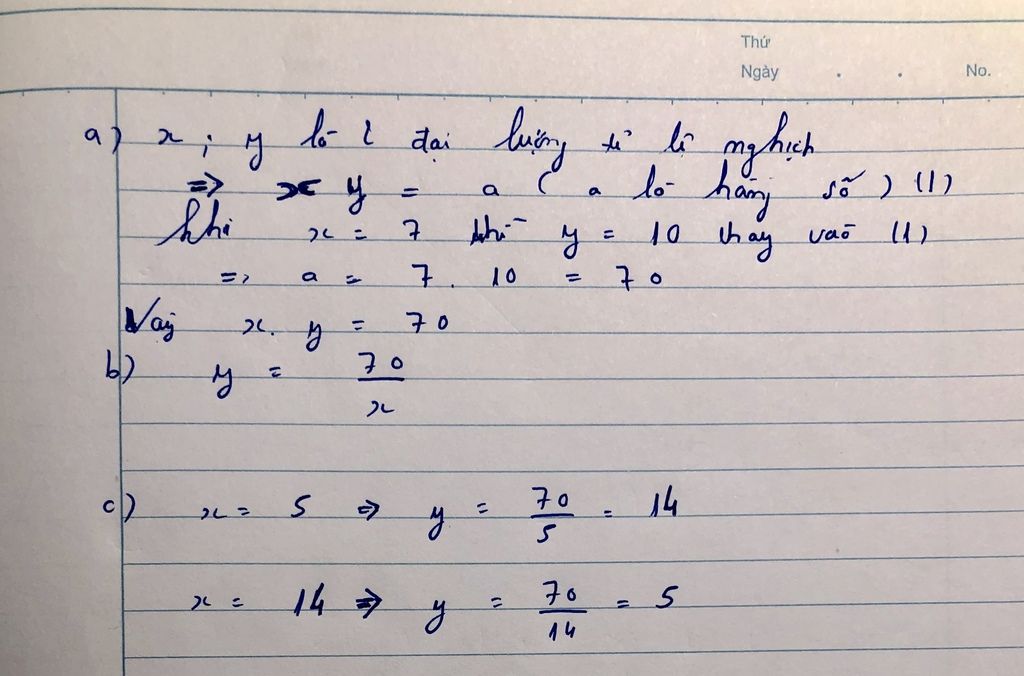 Thứ
Ngày . . No.
a) x ; y là 2 đại lượng tỉ lệ nghịch
=> x y = a ( a là hằng số ) (1)
Khi x = 7 thì y = 10 thay vào (1)
=> a = 7 . 10 = 70
Vậy x. y = 70
b) y = 70/x
c) x = 5 => y = 70/5 = 14
x = 14 => y = 70/14 = 5